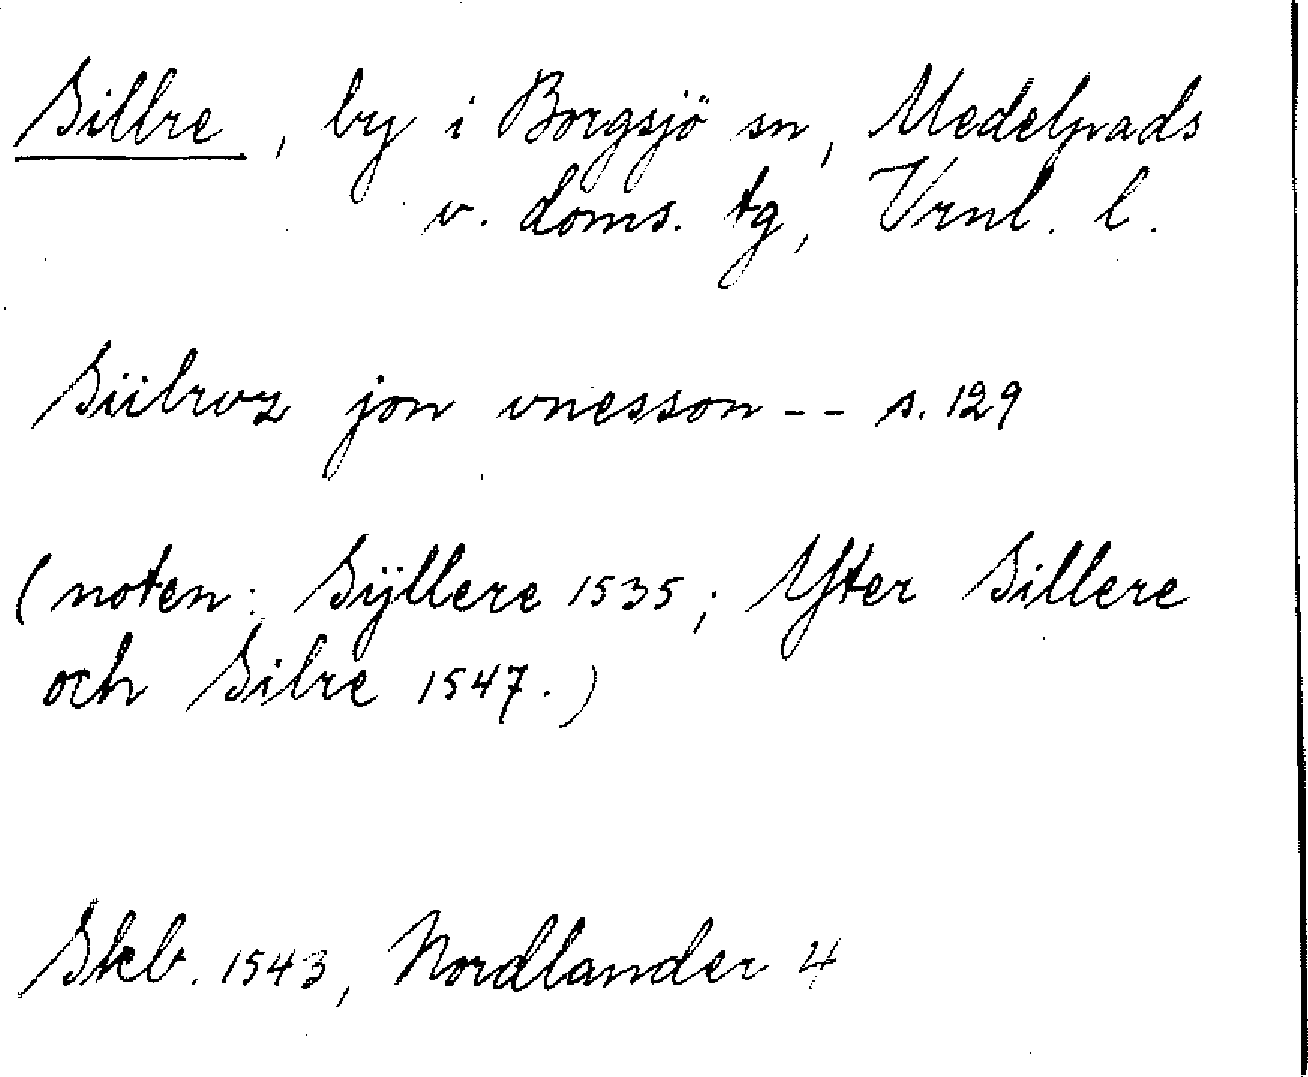 Sillre, by i Borgsjö sn, Medelpads
v. doms. tg, Vrnl. l.
Siilroz jon vnesson -- s. 129
(noten: Sÿllere 1535; Yter Sillere
och Silre 1547.)
Skb. 1543, Nordlander 4